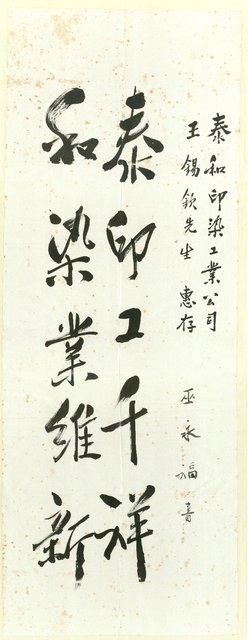 泰和印染工業公司
王錫欽先生 惠存
巫永福
泰印工千祥
和染業維新